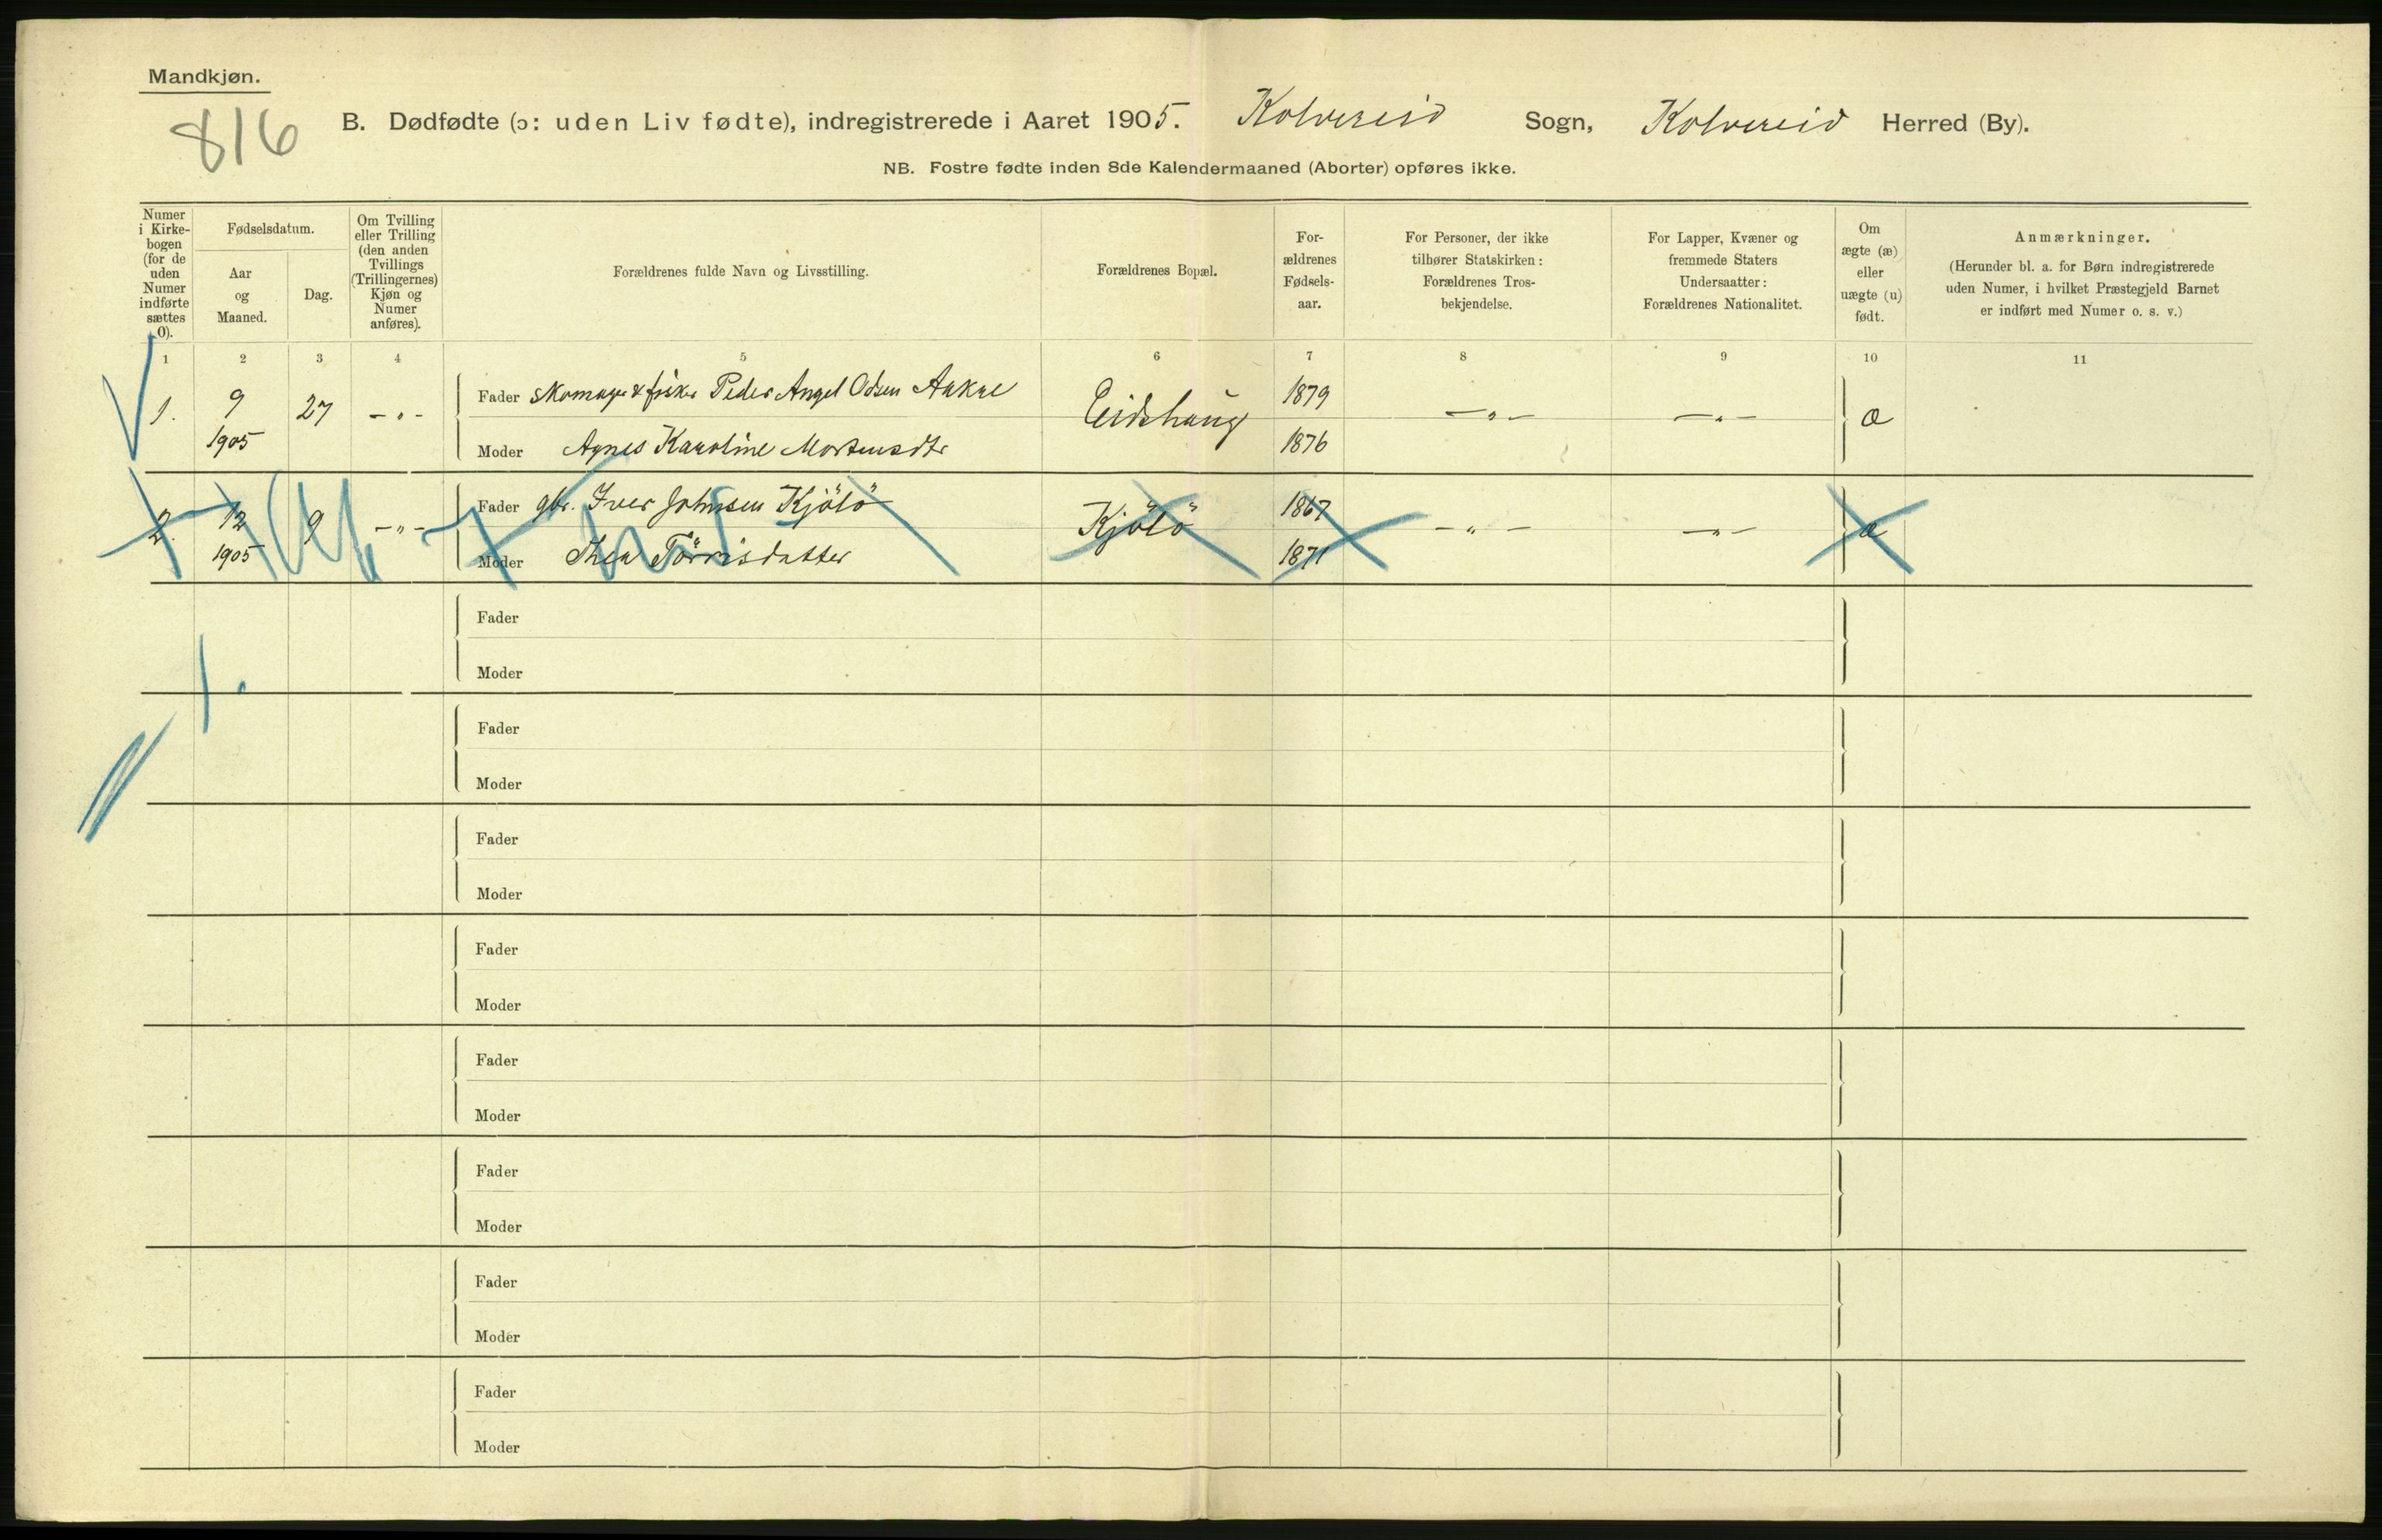 Mandkjøn.
816
B. Dødfødte (ɔ: uden Liv fødte), indregistrerede i Aaret 1905. Kolvereid Sogn, Kolvereid Herred (By).
NB. Fostre fødte inden 8de Kalendermaaned (Aborter) opføres ikke.
Numer
i Kirke-
bogen
(for de
uden
Numer
indførte
sættes
0).
Fødselsdatum.
Aar
og
Maaned.
Dag.
Om Tvilling
eller Trilling
(den anden
Tvillings
(Trillingernes)
Kjøn og
Numer
anføres).
Forældrenes fulde Navn og Livsstilling.
Forældrenes Bopæl.
For-
ældrenes
Fødsels-
aar.
For Personer, der ikke
tilhører Statskirken:
Forældrenes Tros-
bekjendelse.
For Lapper, Kvæner og
fremmede Staters
Undersaatter:
Forældrenes Nationalitet.
Om
ægte (æ)
eller
uægte (u)
født.
Anmærkninger.
(Herunder bl. a. for Børn indregistrerede
uden Numer, i hvilket Præstegjeld Barnet
er indført med Numer o. s. v.)
1 2 3 4 5 6 7 8 9 10 11
1. 9 1905 27 -„- Fader Skomager & fisker Peder Angel Odsen Aakre Eidshaug 1879 -„- -„- æ
Moder Agnes Karoline Mortensdtr 1876
2. 12 1905 9 -„- Fader gbr. Iver Johnsen Kjölö Kjölö 1867 -„- -„- æ
Moder Thea Törrisdatter 1871
Fader
Moder
Fader
Moder
Fader
Moder
Fader
Moder
Fader
Moder
Fader
Moder
Fader
Moder
Fader
Moder